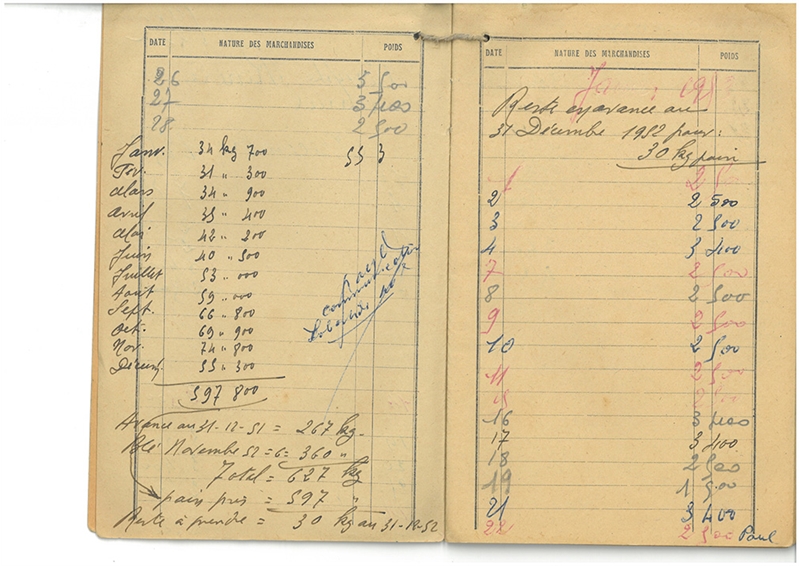 DATE NATURE DES MARCHANDISES POIDS
26 5 500
27 3 400
28 2 500
Janv. 34 kg 700 55 3
Fév. 31 " 300
Mars 34 " 900
Avril 35 " 400
Mai 42 " 200
Juin 40 " 500
Juillet 53 " 000
Août 59 " 000
Sept. 66 " 800
Oct. 69 " 900
Nov. 74 " 800
Décem. 55 " 300
597 800
Avance au 31-12-51 = 267 kg.
Blé Novembre 52 = 6 = 360 "
Total = 627 kg
pain pris = 597 "
Reste à prendre = 30 kg au 31-12-52
DATE NATURE DES MARCHANDISES POIDS
Reste en avance au
31 Décembre 1952 pour :
30 kg pain
2 500
2 2 500
3 2 500
4 3 400
7 2 500
8 2 500
9 2 500
10 2 500
11 2 500
16 3 400
17 3 400
18 2 500
19 1 500
21 3 400
22 2 500 Paul